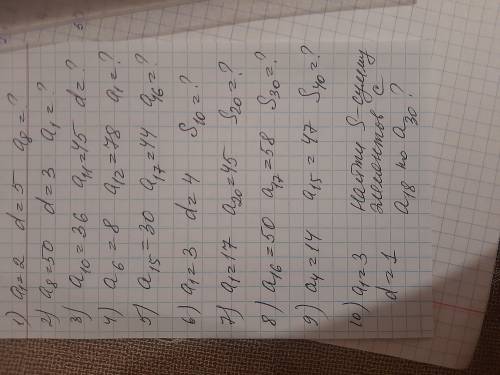 1) a₁=2 d=5 a₈=?
2) a₈=50 d=3 a₁=?
3) a₁₀=36 a₁₁=45 d=?
4) a₆=8 a₁₂=78 a₁=?
5) a₁₅=30 a₁₇=44 a₁₆=?
6) a₁=3 d=4 S₁₀=?
7) a₁=17 a₂₀=45 S₂₀=?
8) a₁₆=50 a₁₇=58 S₃₀=?
9) a₄=14 a₁₅=47 S₄₀=?
10) a₁=3 Найти S-сумму
d=1 элементов с
a₁₈ по a₃₀?